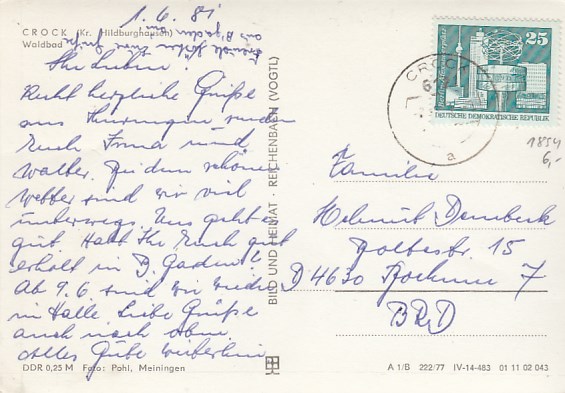 1.6.81
CROCK (Kr. Hildburghausen)
Waldbad
Ihr Lieben!
Recht herzliche Grüße
aus Thüringen senden
Euch Irma und
Walter. Bei dem schönen
Wetter sind wir viel
unterwegs. Uns geht es
gut. Habt Ihr Euch gut
erholt in B. Gadens!
Ab 9.6 sind wir wieder
in Halle. Liebe Grüße
auch nach oben
Alles Gute weiterhin
DDR 0,25 M Foto: Pohl, Meiningen
BILD UND HEIMAT · REICHENBACH (VOGTL)
25
DEUTSCHE DEMOKRATISCHE REPUBLIK
CROCK
a
1854
6,-
Familie
Helmut Dembeck
15
D 4630 Bochum 7
BRD
A 1/B 222/77 IV-14-483 01 11 02 043